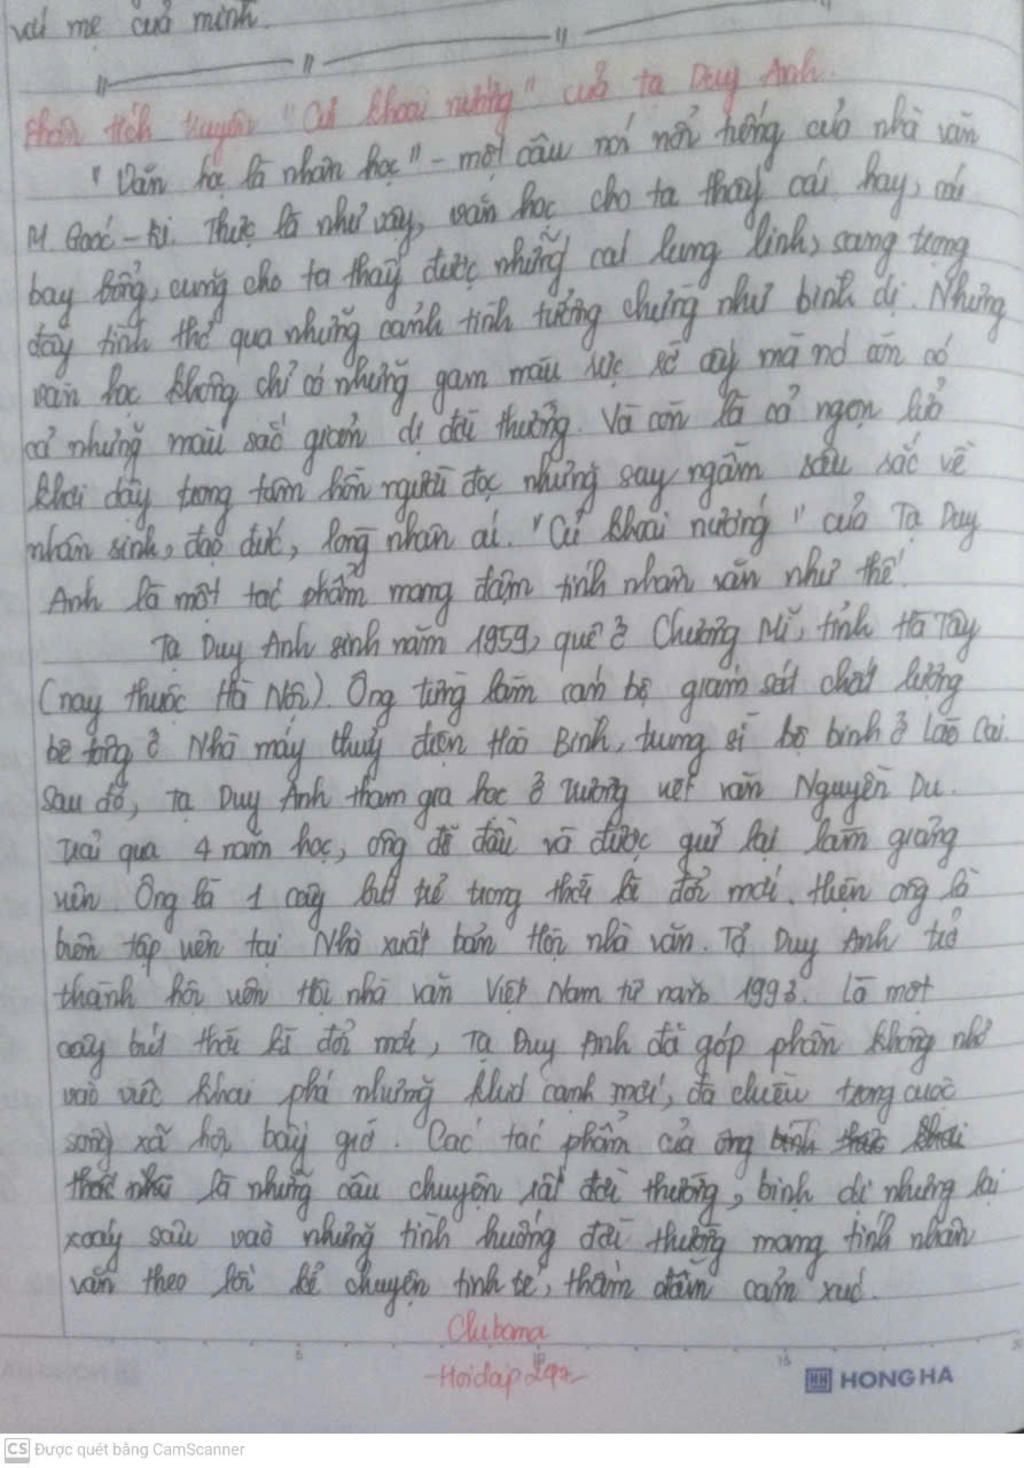 với mẹ của mình.
Phân tích truyện "Củ khoai nướng" của Tạ Duy Anh.
"Văn học là nhân học" - một câu nói nổi tiếng của nhà văn
M. Goóc-ki. Thực là như vậy, văn học cho ta thấy cái hay, cái
bay bổng, cũng cho ta thấy được những cái lung linh, sang trọng
đầy tình thơ qua những cảnh tình tưởng chừng như bình dị. Nhưng
văn học không chỉ có những gam màu rực rỡ ấy mà nó còn có
cả những màu sắc giản dị đời thường. Và còn là cả ngọn lửa
khơi dậy trong tâm hồn người đọc những suy ngẫm sâu sắc về
nhân sinh, đạo đức, lòng nhân ái. "Củ khoai nướng" của Tạ Duy
Anh là một tác phẩm mang đậm tính nhân văn như thế.
Tạ Duy Anh sinh năm 1959, quê ở Chương Mĩ, tỉnh Hà Tây
(nay thuộc Hà Nội). Ông từng làm cán bộ giám sát chất lượng
bê tông ở Nhà máy thuỷ điện Hoà Bình, trung sĩ bộ binh ở Lào Cai.
Sau đó, Tạ Duy Anh tham gia học ở trường viết văn Nguyễn Du.
Trải qua 4 năm học, ông đỗ đầu và được giữ lại làm giảng
viên. Ông là 1 cây bút trẻ trong thời kì đổi mới. Hiện ông là
biên tập viên tại Nhà xuất bản Hội nhà văn. Tạ Duy Anh trở
thành hội viên Hội nhà văn Việt Nam từ năm 1993. Là một
cây bút thời kì đổi mới, Tạ Duy Anh đã góp phần không nhỏ
vào việc khai phá những khía cạnh mới, đa chiều trong cuộc
sống xã hội bấy giờ. Các tác phẩm của ông
là những câu chuyện rất đời thường, bình dị nhưng lại
xoáy sâu vào những tình huống đời thường mang tính nhân
văn theo lối kể chuyện tinh tế, thấm đẫm cảm xúc.
Clubama
-Hoidap247-
HH HONG HA
CS Được quét bằng CamScanner